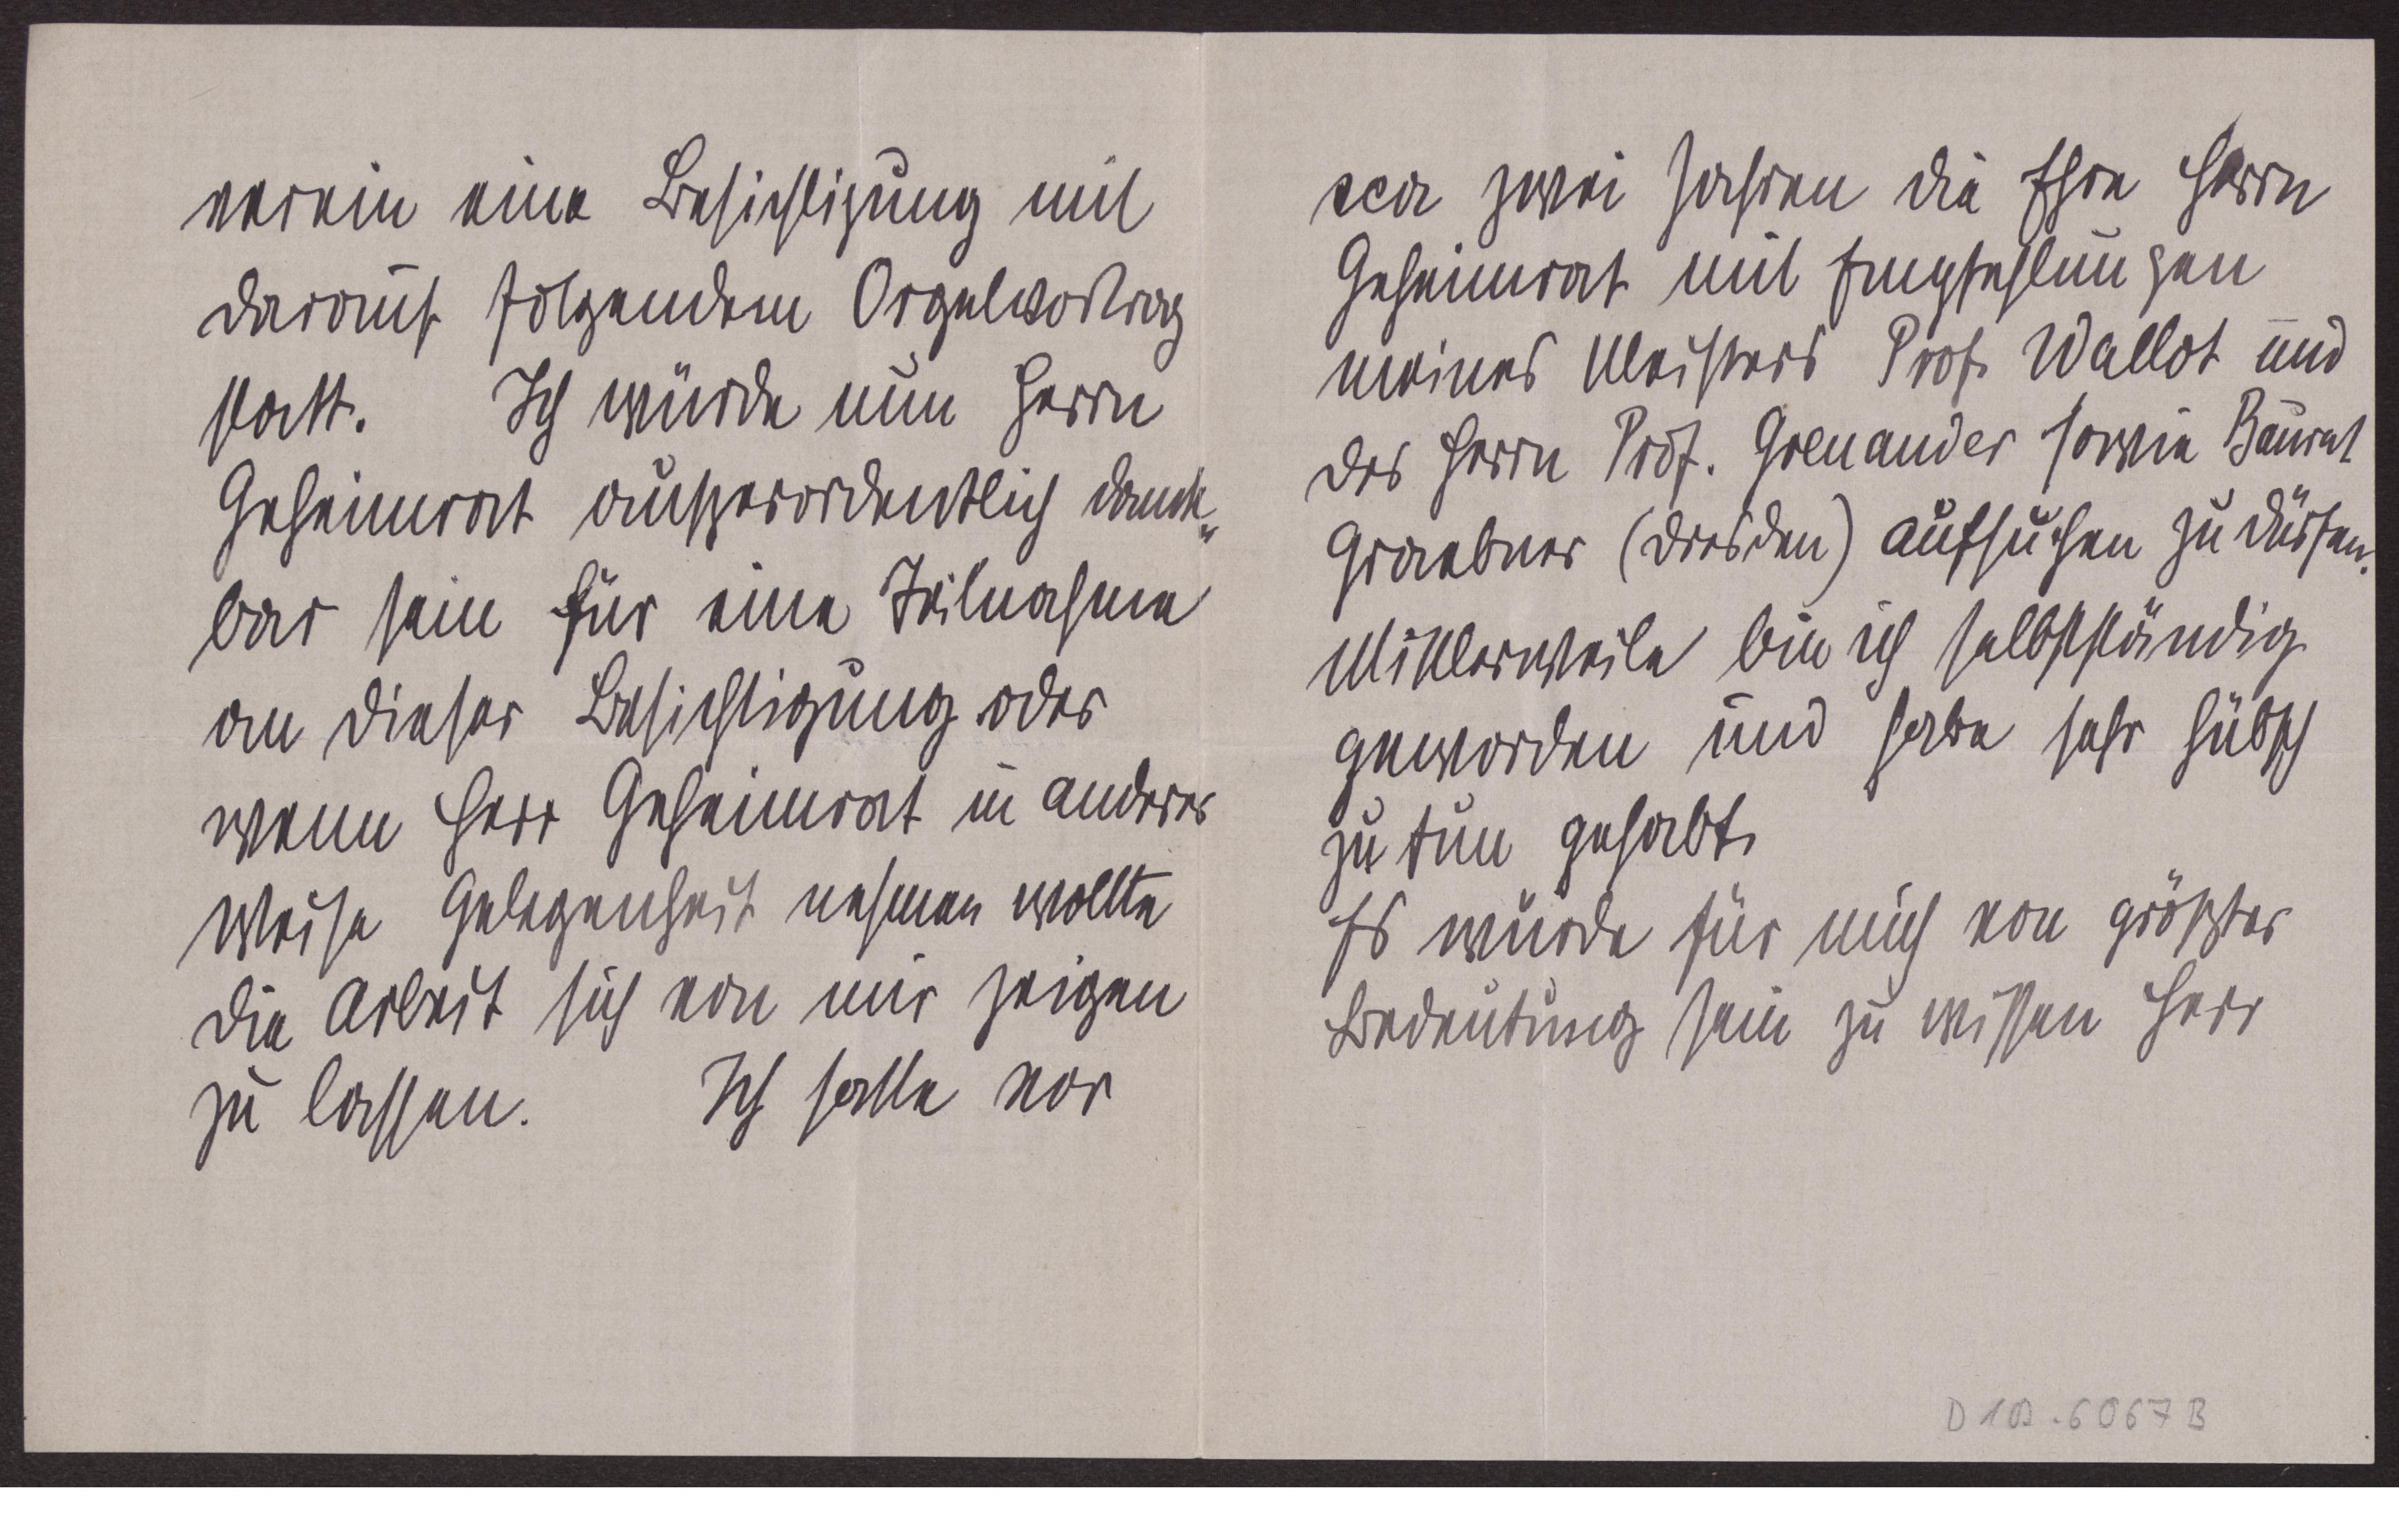 verein eine Besichtigung mit
darauf folgendem Orgelvortrag
statt. Ich würde nun Herrn
Geheimrat außerordentlich dank„
bar sein für eine Teilnahme
an dieser Besichtigung oder
wenn Herr Geheimrat in anderer
Weise Gelegenheit nehmen wollte
die Arbeit sich von mir zeigen
zu lassen. Ich hatte vor
cca zwei Jahren die Ehre Herrn
Geheimrat mit Empfehlungen
meines Meisters Prof. Wallot und
des Herrn Prof. Grenander sowie Baurat
Graebner (Dresden) aufsuchen zu dürfen.
Mittlerweile bin ich selbstständig
geworden und habe sehr hübsch
zu tun gehabt.
Es würde für mich von größter
Bedeutung sein zu wissen Herr
D 109.6067 B